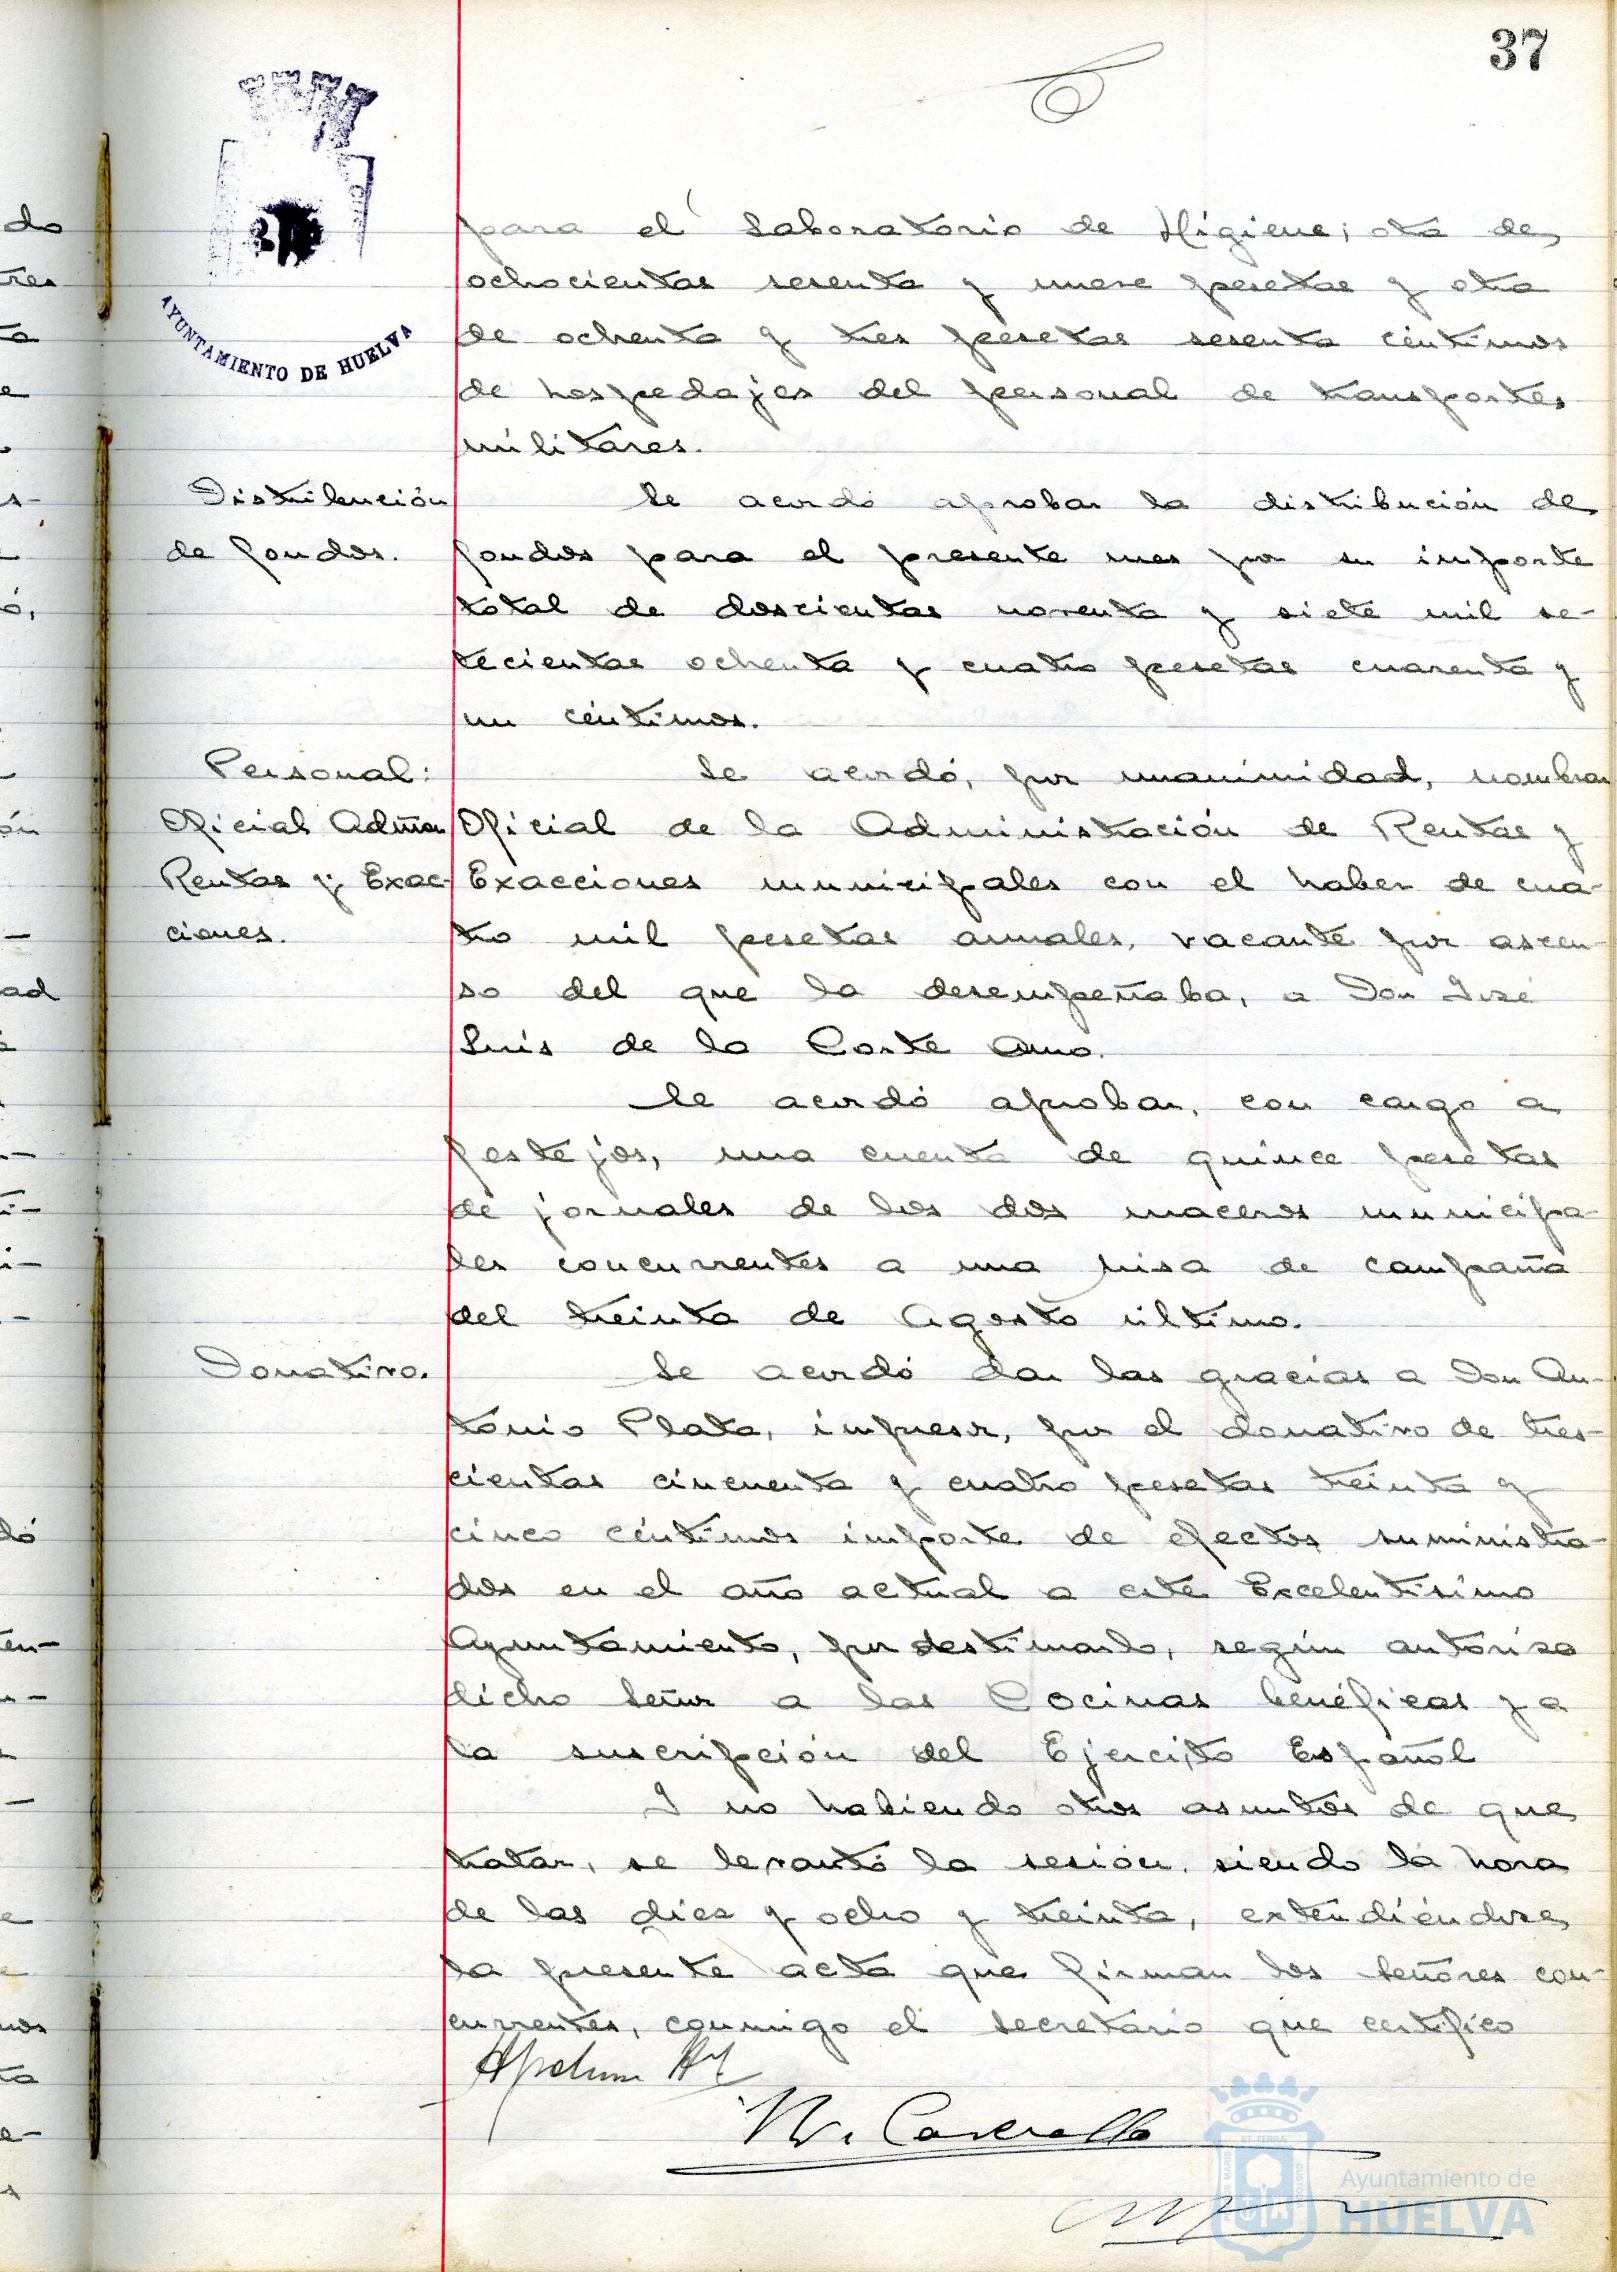 37
AYUNTAMIENTO DE HUELVA
para el Laboratorio de Higiene; otra de
ochocientas sesenta y nueve pesetas y otra
de ochenta y tres pesetas sesenta céntimos
de hospedajes del personal de transportes
militares.
Distribución
de fondos.
Se acordó aprobar la distribución de
fondos para el presente mes por su importe
total de doscientas noventa y siete mil se-
tecientas ochenta y cuatro pesetas cuarenta y
un céntimos.
Personal:
Oficial Admón
Rentas y Exac-
ciones.
Se acordó, por unanimidad, nombrar
Oficial de la Administración de Rentas y
Exacciones municipales con el haber de cua-
tro mil pesetas anuales, vacante por ascen-
so del que la desempeñaba, a Don José
Luis de la Corte
Se acordó aprobar, con cargo a
festejos, una cuenta de quince pesetas
de jornales de los dos maceros municipa-
les concurrentes a una misa de campaña
del treinta de Agosto último.
Donativo.
Se acordó dar las gracias a Don An-
tonio Plata, impresor, por el donativo de tres-
cientas cincuenta y cuatro pesetas treinta y
cinco céntimos importe de efectos suministra-
dos en el año actual a este Excelentísimo
Ayuntamiento, por destinarlo, según autoriza
dicho Señor a las Cocinas benéficas y a
la suscripción del Ejercito Español
I no habiendo otros asuntos de que
tratar, se levantó la sesión, siendo la hora
de las diez y ocho y treinta, extendiéndose
la presente acta que firman los Señores con-
currentes, conmigo el Secretario que certifico
Ayuntamiento de
HUELVA